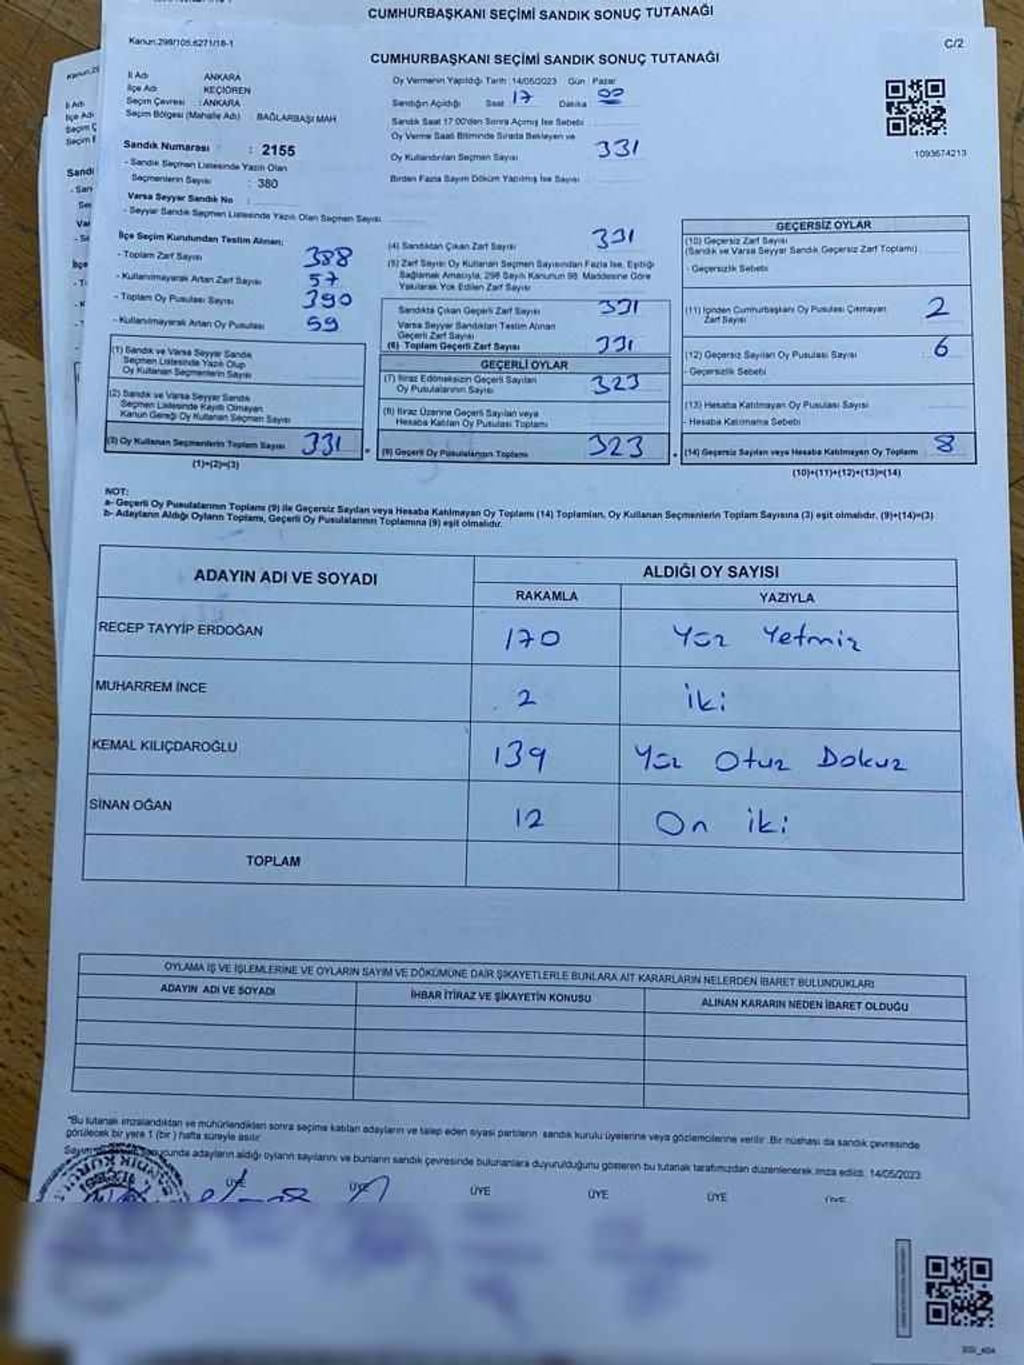 CUMHURBAŞKANI SEÇİMİ SANDIK SONUÇ TUTANAĞI
Kanun:298/105.6271/18-1
C/2
CUMHURBAŞKANI SEÇİMİ SANDIK SONUÇ TUTANAĞI
İl Adı ANKARA
İlçe Adı KEÇİÖREN
Seçim Çevresi : ANKARA
Seçim Bölgesi (Mahalle Adı) BAĞLARBAŞI MAH
Sandık Numarası : 2155
- Sandık Seçmen Listesinde Yazılı Olan
Seçmenlerin Sayısı : 380
Varsa Seyyar Sandık No
- Seyyar Sandık Seçmen Listesinde Yazılı Olan Seçmen Sayısı
Oy Vermenin Yapıldığı Tarih: 14/05/2023 Gün : Pazar
Sandığın Açıldığı Saat 17 Dakika 00
Sandık Saat 17:00'den Sonra Açılmış İse Sebebi
Oy Verme Saati Bitiminde Sırada Bekleyen ve
Oy Kullandırılan Seçmen Sayısı 331
Birden Fazla Sayım Döküm Yapılmış İse Sayısı
1093674213
İlçe Seçim Kurulundan Teslim Alınan:
- Toplam Zarf Sayısı 388
- Kullanılmayarak Artan Zarf Sayısı 57
- Toplam Oy Pusulası Sayısı 390
- Kullanılmayarak Artan Oy Pusulası 59
(1) Sandık ve Varsa Seyyar Sandık
Seçmen Listesinde Yazılı Olup
Oy Kullanan Seçmenlerin Sayısı
(2) Sandık ve Varsa Seyyar Sandık
Seçmen Listesinde Kayıtlı Olmayan
Kanun Gereği Oy Kullanan Seçmen Sayısı
(3) Oy Kullanan Seçmenlerin Toplam Sayısı 331
(1)+(2)=(3)
(4) Sandıktan Çıkan Zarf Sayısı 331
(5) Zarf Sayısı Oy Kullanan Seçmen Sayısından Fazla İse, Eşitliği
Sağlamak Amacıyla, 298 Sayılı Kanunun 98. Maddesine Göre
Yakılarak Yok Edilen Zarf Sayısı
Sandıkta Çıkan Geçerli Zarf Sayısı 331
Varsa Seyyar Sandıktan Teslim Alınan
Geçerli Zarf Sayısı
(6) Toplam Geçerli Zarf Sayısı 331
GEÇERLİ OYLAR
(7) İtiraz Edilmeksizin Geçerli Sayılan
Oy Pusulalarının Sayısı 323
(8) İtiraz Üzerine Geçerli Sayılan veya
Hesaba Katılan Oy Pusulası Toplamı
(9) Geçerli Oy Pusulalarının Toplamı 323
GEÇERSİZ OYLAR
(10) Geçersiz Zarf Sayısı
(Sandık ve Varsa Seyyar Sandık Geçersiz Zarf Toplamı)
- Geçersizlik Sebebi
(11) İçinden Cumhurbaşkanı Oy Pusulası Çıkmayan
Zarf Sayısı 2
(12) Geçersiz Sayılan Oy Pusulası Sayısı : 6
- Geçersizlik Sebebi
(13) Hesaba Katılmayan Oy Pusulası Sayısı
- Hesaba Katılmama Sebebi
(14) Geçersiz Sayılan veya Hesaba Katılmayan Oy Toplamı 8
(10)+(11)+(12)+(13)=(14)
NOT:
a- Geçerli Oy Pusulalarının Toplamı (9) ile Geçersiz Sayılan veya Hesaba Katılmayan Oy Toplamı (14) Toplamları, Oy Kullanan Seçmenlerin Toplam Sayısına (3) eşit olmalıdır. (9)+(14)=(3)
b- Adayların Aldığı Oyların Toplamı, Geçerli Oy Pusulalarının Toplamına (9) eşit olmalıdır.
ADAYIN ADI VE SOYADI
ALDIĞI OY SAYISI
RAKAMLA YAZIYLA
RECEP TAYYİP ERDOĞAN 170 Yüz Yetmiz
MUHARREM İNCE 2 iki
KEMAL KILIÇDAROĞLU 139 Yüz Otuz Dokuz
SİNAN OĞAN 12 On iki
TOPLAM
OYLAMA İŞ VE İŞLEMLERİNE VE OYLARIN SAYIM VE DÖKÜMÜNE DAİR ŞİKAYETLERLE BUNLARA AİT KARARLARIN NELERDEN İBARET BULUNDUKLARI
ADAYIN ADI VE SOYADI İHBAR İTİRAZ VE ŞİKAYETİN KONUSU ALINAN KARARIN NEDEN İBARET OLDUĞU
"Bu tutanak imzalandıktan ve mühürlendikten sonra seçime katılan adayların ve talep eden siyasi partilerin sandık kurulu üyelerine veya gözlemcilerine verilir. Bir nüshası da sandık çevresinde
görülecek bir yere 1 (bir) hafta süreyle asılır.
sonucunda adayların aldığı oyların sayılarını ve bunların sandık çevresinde bulunanlara duyurulduğunu gösteren bu tutanak tarafımızdan düzenlenerek imza edildi. 14/05/2023
ÜYE ÜYE ÜYE ÜYE ÜYE